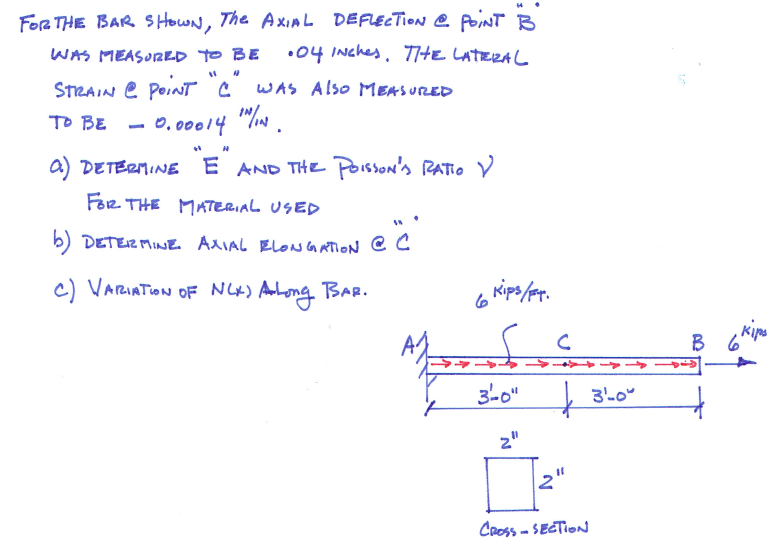 FOR THE BAR SHOWN, The AXIAL DEFLECTION @ POINT "B"
WAS MEASURED TO BE .04 INches. THE LATERAL
STRAIN @ POINT "C" WAS Also MEASURED
TO BE - 0.00014 IN/IN.
a) DETERMINE "E" AND THE POISSON'S RATIO ν
FOR THE MATERIAL USED
b) DETERMINE AXIAL ELONGATION @ "C"
c) VARIATION OF N(x) ALong BAR.
6 Kips/FT.
A C B 6 Kips
3'-0" 3'-0"
2"
2"
CROSS-SECTION